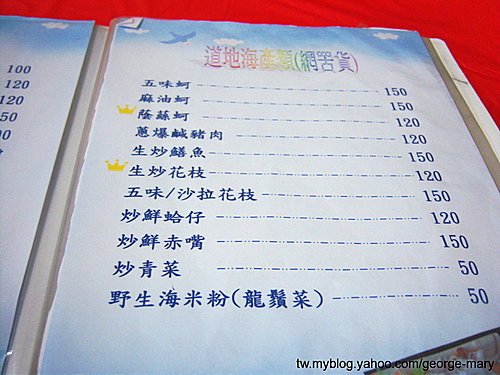 100
120
120
150
90
120
道地海產類(網罟貨)
五味蚵 150
麻油蚵 150
蔭蘇蚵 120
蔥爆鹹豬肉 120
生炒鱔魚 150
生炒花枝 120
五味/沙拉花枝 150
炒鮮蛤仔 120
炒鮮赤嘴 150
炒青菜 50
野生海米粉(龍鬚菜) 50
tw.myblog.yahoo.com/george-mary